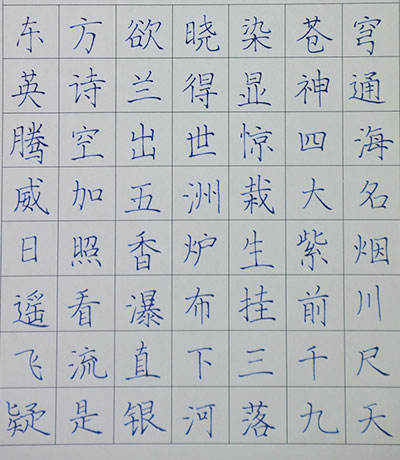 东方欲晓染苍穹
英诗兰得显神通
腾空出世惊四海
威加五洲栽大名
日照香炉生紫烟
遥看瀑布挂前川
飞流直下三千尺
疑是银河落九天